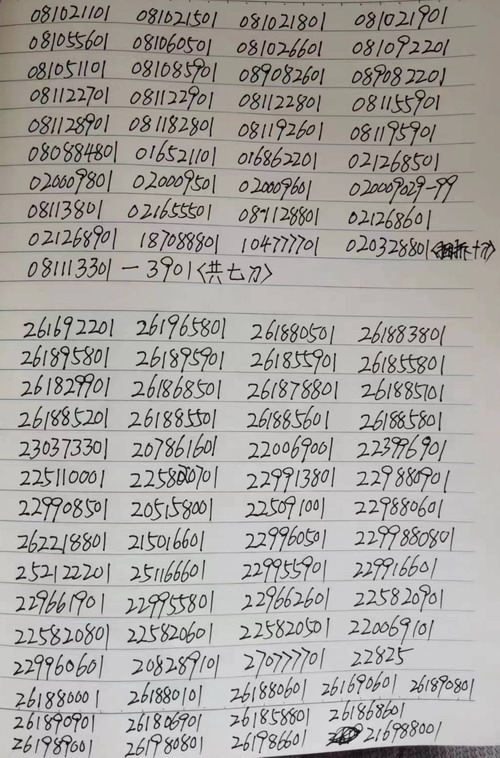 081021101 081021501 081021801 081021901
081055601 081060501 081026601 081092201
081051101 081085901 089082601 089082201
081122701 081122901 081122801 081155901
081128901 081182801 081192601 081195901
080884801 016521101 016862201 021268501
020009801 020009501 020009601 020009029-99
08113801 021655501 081128801 021268601
021268901 187088801 104777701 020328801
081113301-3901〈共七刀〉
261692201 261965801 261880501 261883801
261895801 261895901 261855901 261855801
261829901 261868501 261878801 261885101
261885201 261885501 261885601 261885801
230373301 207861601 220069001 223996901
225110001 229913801 229880901
229908501 205158001 225091001 229880601
262218801 215016601 229960501 2299880801
252122201 251166601 229955901 229916601
229661901 229955801 229662601 225820901
225820801 225820601 225820501 220069101
229960601 208289101 270777701 22825
261880001 261880101 261880601 261690601 261890801
261890901 261806901 261858801 261868601
261989001 261980801 261986601 216988001